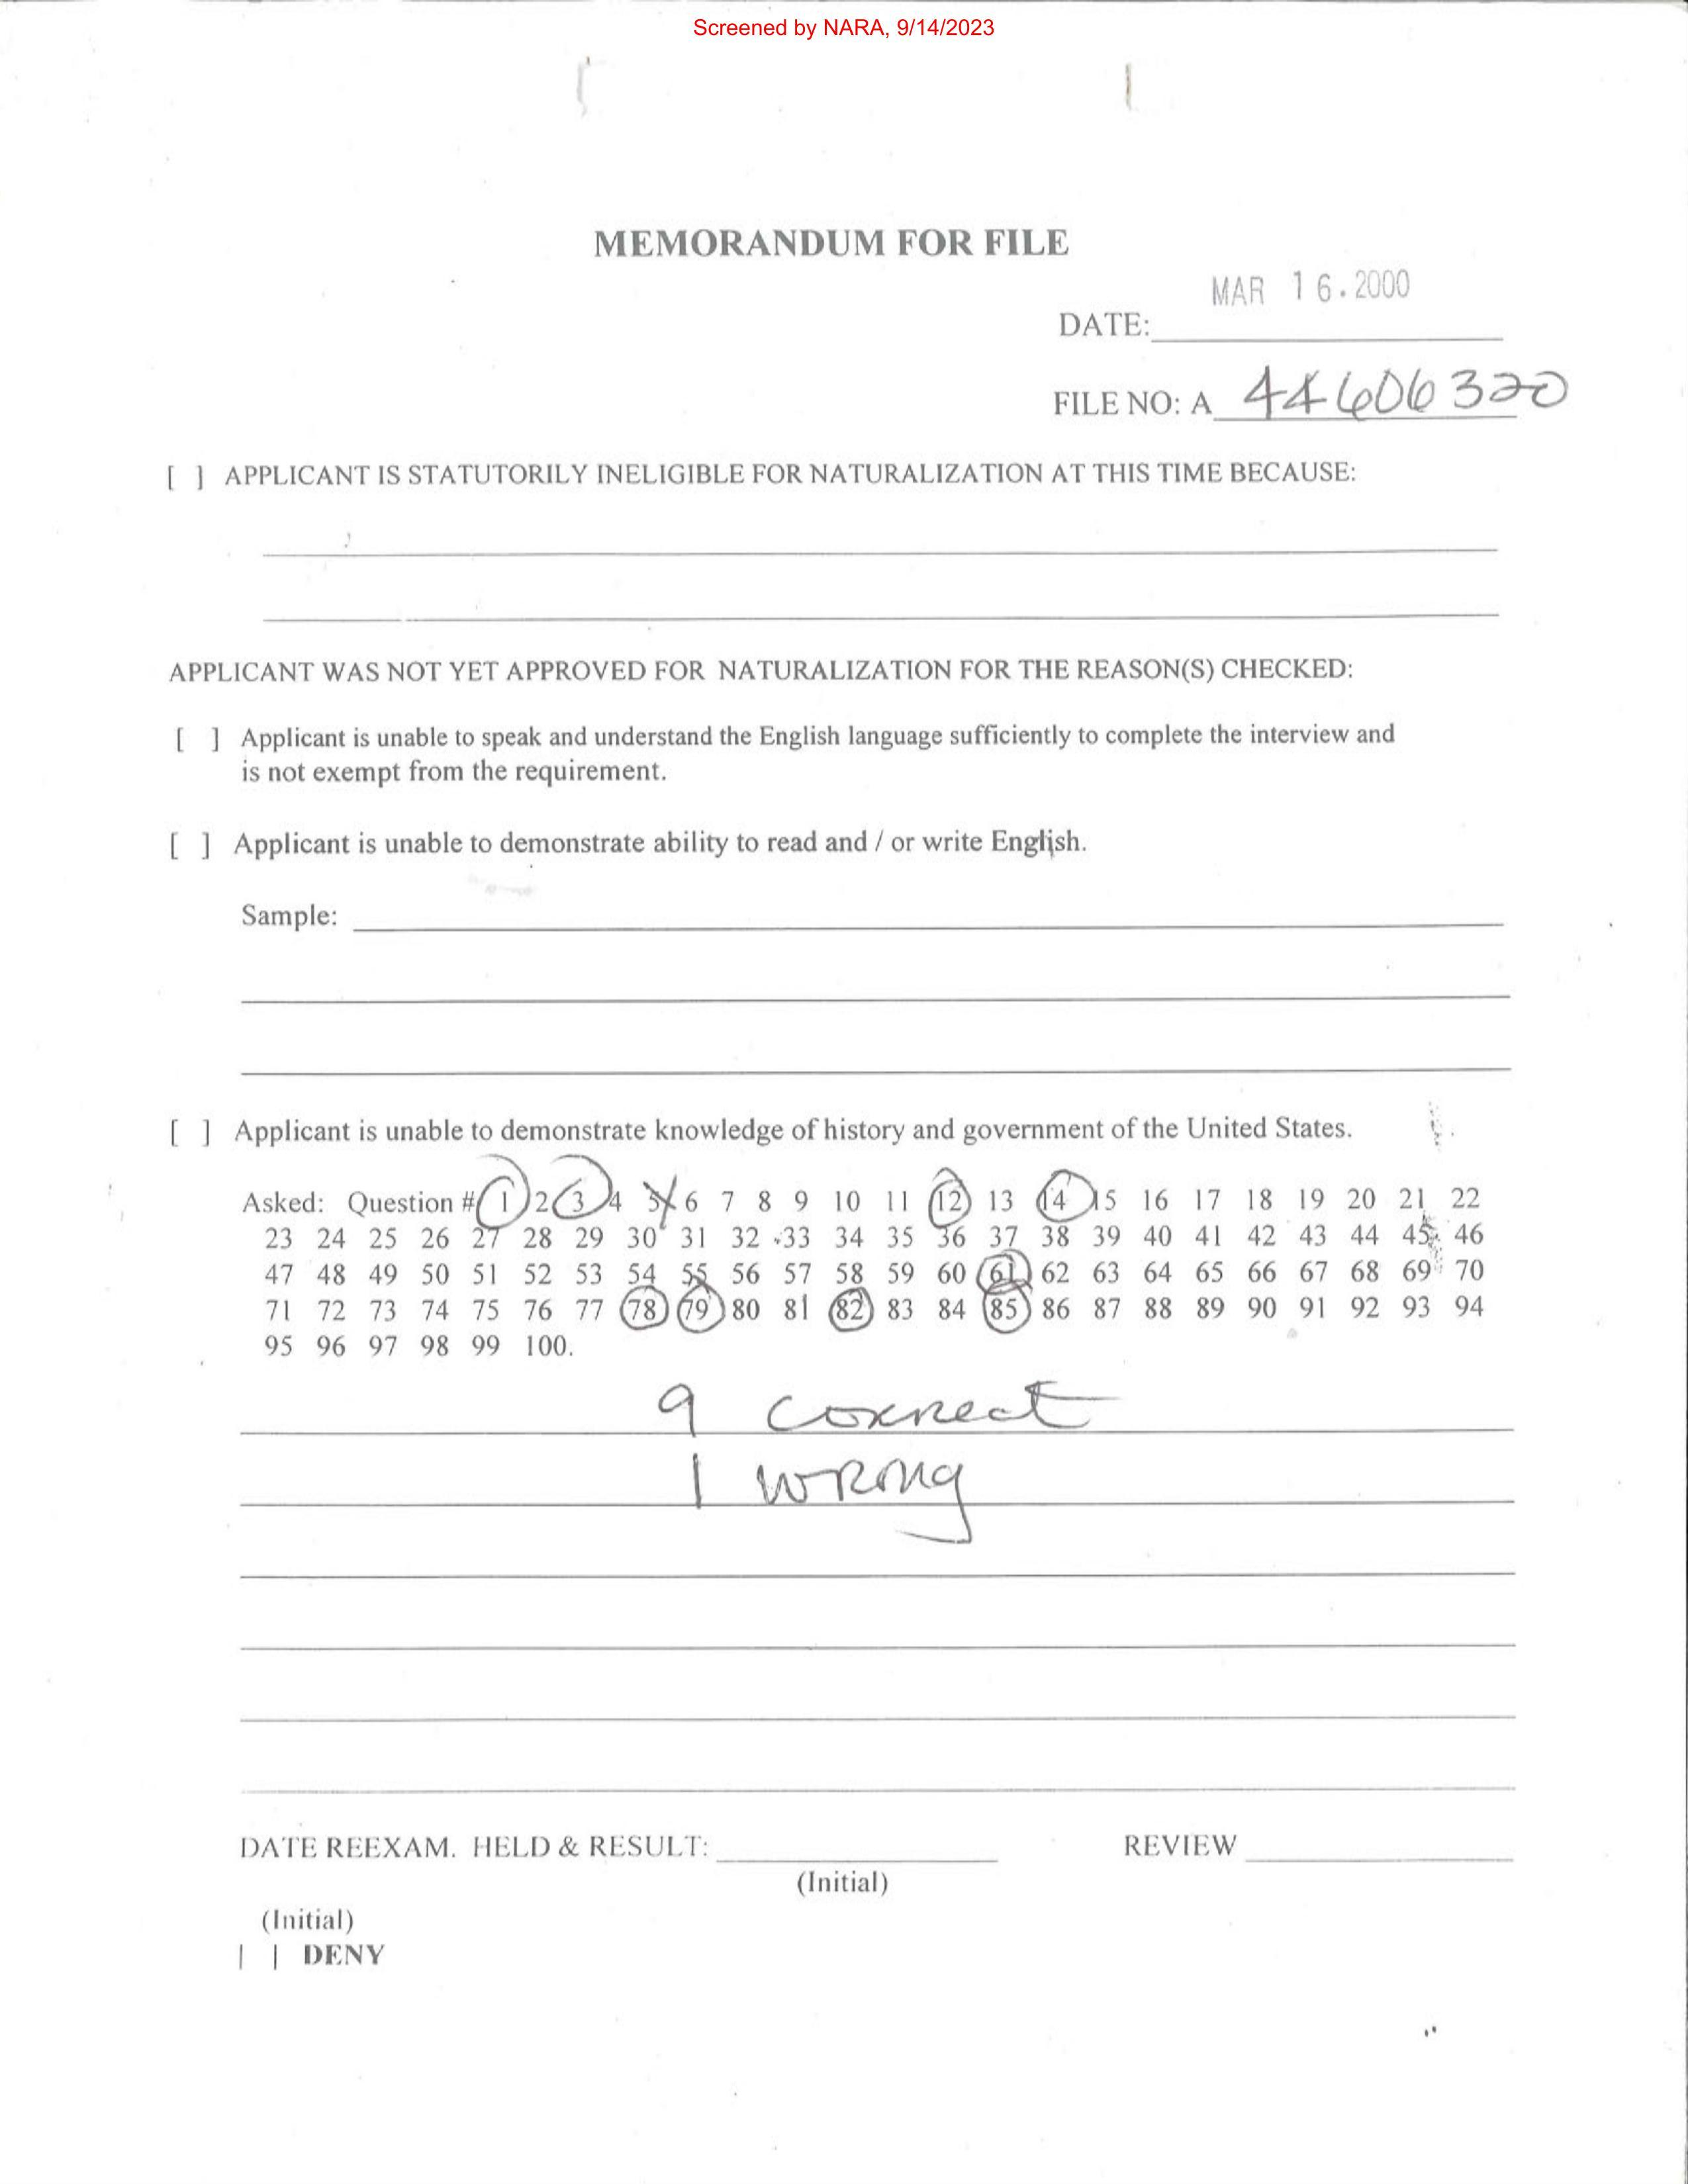 Screened by NARA, 9/14/2023
MEMORANDUM FOR FILE
MAR 16.2000
DATE:
FILE NO: A 44606320
[ ] APPLICANT IS STATUTORILY INELIGIBLE FOR NATURALIZATION AT THIS TIME BECAUSE:
APPLICANT WAS NOT YET APPROVED FOR NATURALIZATION FOR THE REASON(S) CHECKED:
[ ] Applicant is unable to speak and understand the English language sufficiently to complete the interview and
is not exempt from the requirement.
[ ] Applicant is unable to demonstrate ability to read and / or write English.
Sample:
[ ] Applicant is unable to demonstrate knowledge of history and government of the United States.
Asked: Question # 1 2 3 4 5 6 7 8 9 10 11 12 13 14 15 16 17 18 19 20 21 22
23 24 25 26 27 28 29 30 31 32 33 34 35 36 37 38 39 40 41 42 43 44 45 46
47 48 49 50 51 52 53 54 55 56 57 58 59 60 61 62 63 64 65 66 67 68 69 70
71 72 73 74 75 76 77 78 79 80 81 82 83 84 85 86 87 88 89 90 91 92 93 94
95 96 97 98 99 100.
9 correct
1 wrong
DATE REEXAM. HELD & RESULT: REVIEW
(Initial)
(Initial)
[ ] DENY